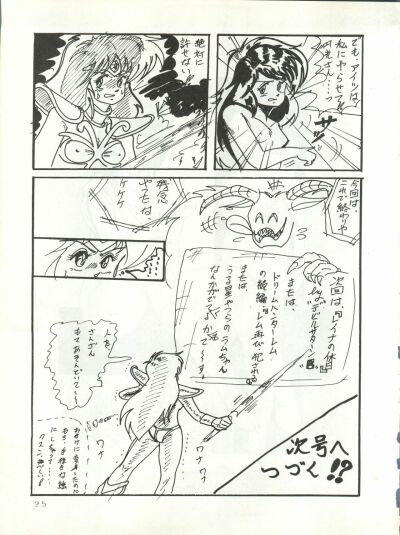 でも、アイツは、
私にやらせて
阿光さん……っ
サッ
絶対に
許せない!!
今回は、
これで終わりや
残念
やったな、
ケケケ
次回は、『レイナの休日』
by デビルサターン
または、
ドリームハンターレム
の続編『レム再び犯される』
または、
うる星やつらのラムちゃん
なんかがでてくるかも
で〜す。
人を
さんざん
もてあそんでいて〜
おまけに変身したのに
にしちゃって……
クスン、悲しい!
ワナ
ワナワナ
次号へ
つづく!?
25